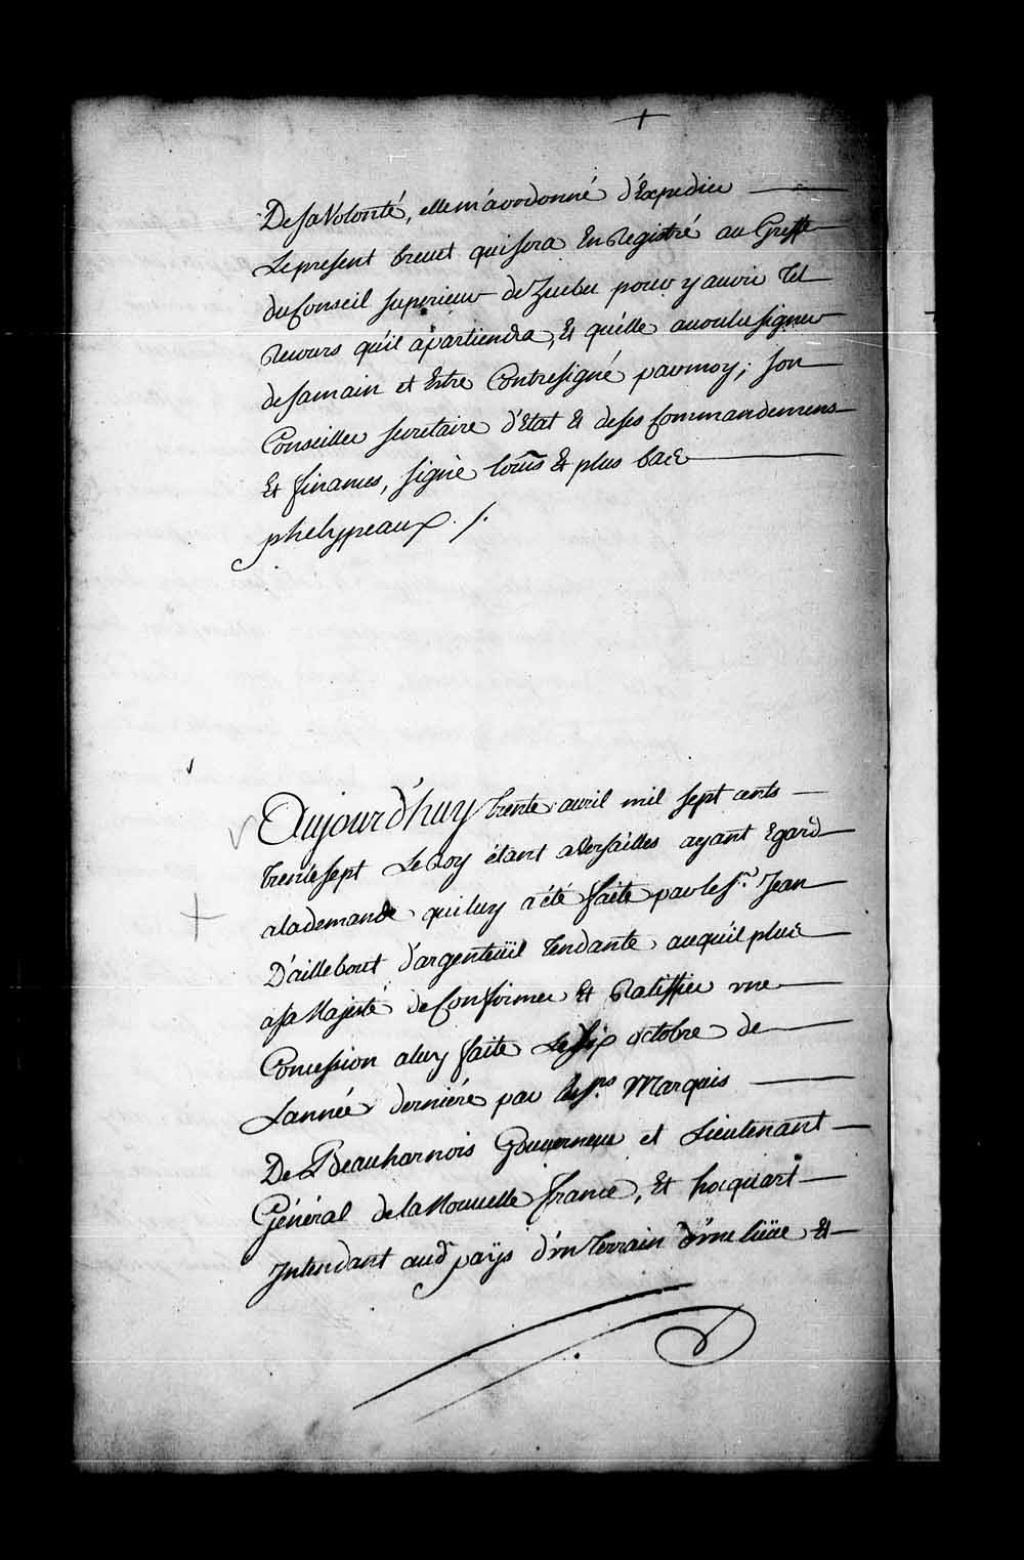 De sa Volonté, elle m'a ordonné d'Expedier
Le present brevet qui sera Enregistré au Greffe
du Conseil superieur de Quebec pour y avoir Tel
Recours qu'il apartiendra, Et qu'elle a voulu signer
de sa main et Estre Contresigné par moy, son
Conseiller secretaire d'Etat & de ses Commandemens
Et finances, signé Loüis & plus bas
phelypeaux ./.
Aujourd'huy trente avril mil sept cents
trente sept Le Roy étant a Versailles ayant Egard
a la demande qui luy a été faite par le Sr. Jean
D'aillebout d'argenteüil Tendante a ce qu'il plut
a sa Majesté de Confirmer Et Ratiffier une
Concession a luy faite Le six octobre de
L'année derniére par les Srs. Marquis
De Beauharnois Gouverneur et Lieutenant
Général de la Nouvelle france, Et hocquart
Intendant aud. païs d'un Terrain d'une lieüe Et